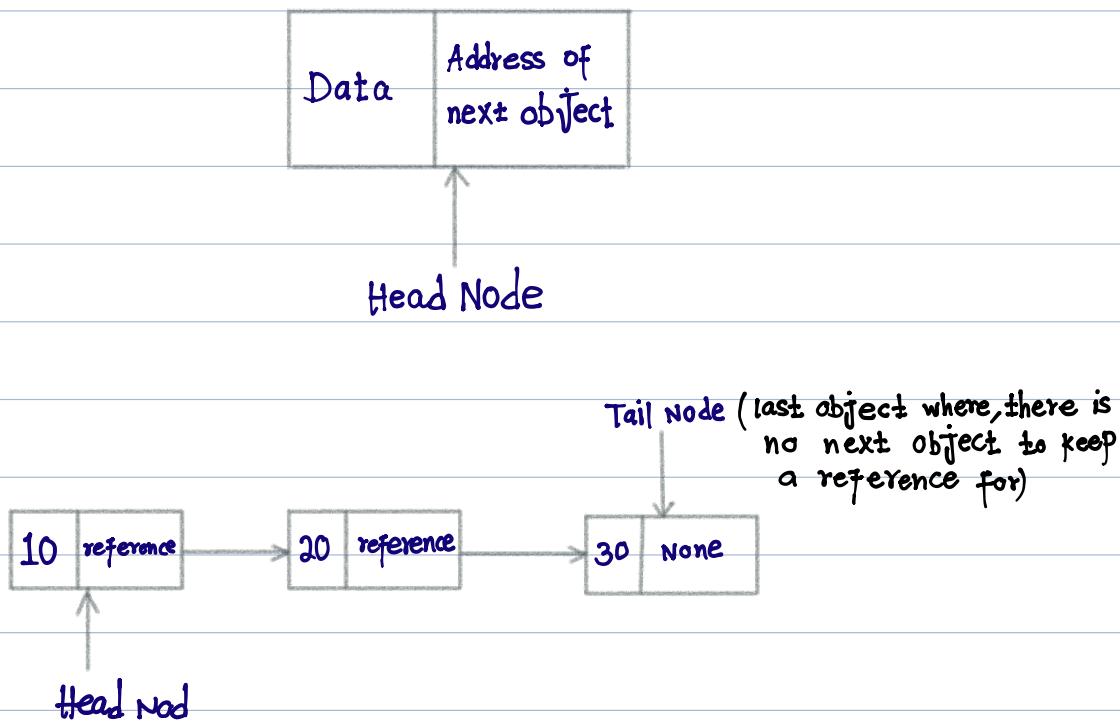 Data
Address of
next object
Head Node
Tail Node (last object where, there is
no next object to keep
a reference for)
10 reference 20 reference 30 None
Head Nod